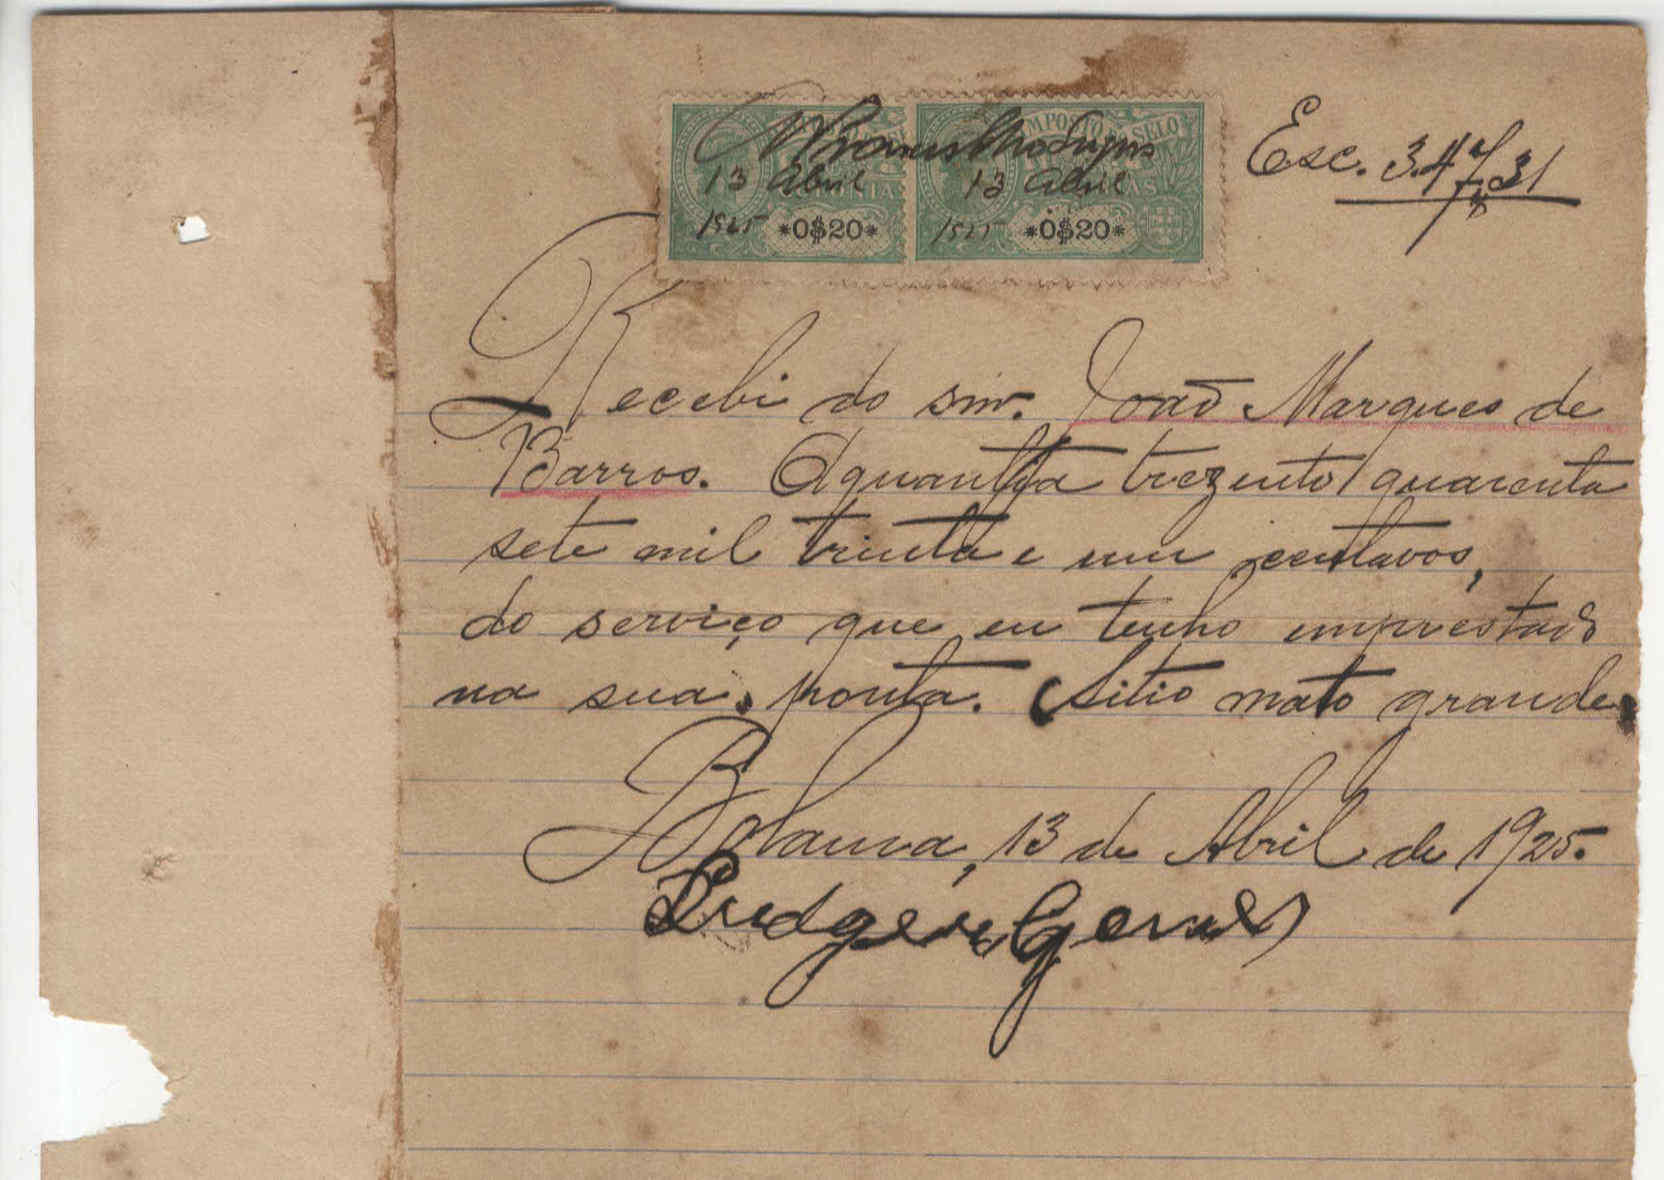 IMPOSTO DO SELO
13 Abril 13 Abril
1925 1925
*0$20* *0$20*
Esc. 347,31
Recebi do snr. João Marques de
Barros. Aquantia trezento quarenta
sete mil trinta e um centavos,
do serviço que eu tenho imprestado
na sua, ponta. (Sitio mato grande)
Bolama, 13 de Abril de 1925.
Gomes